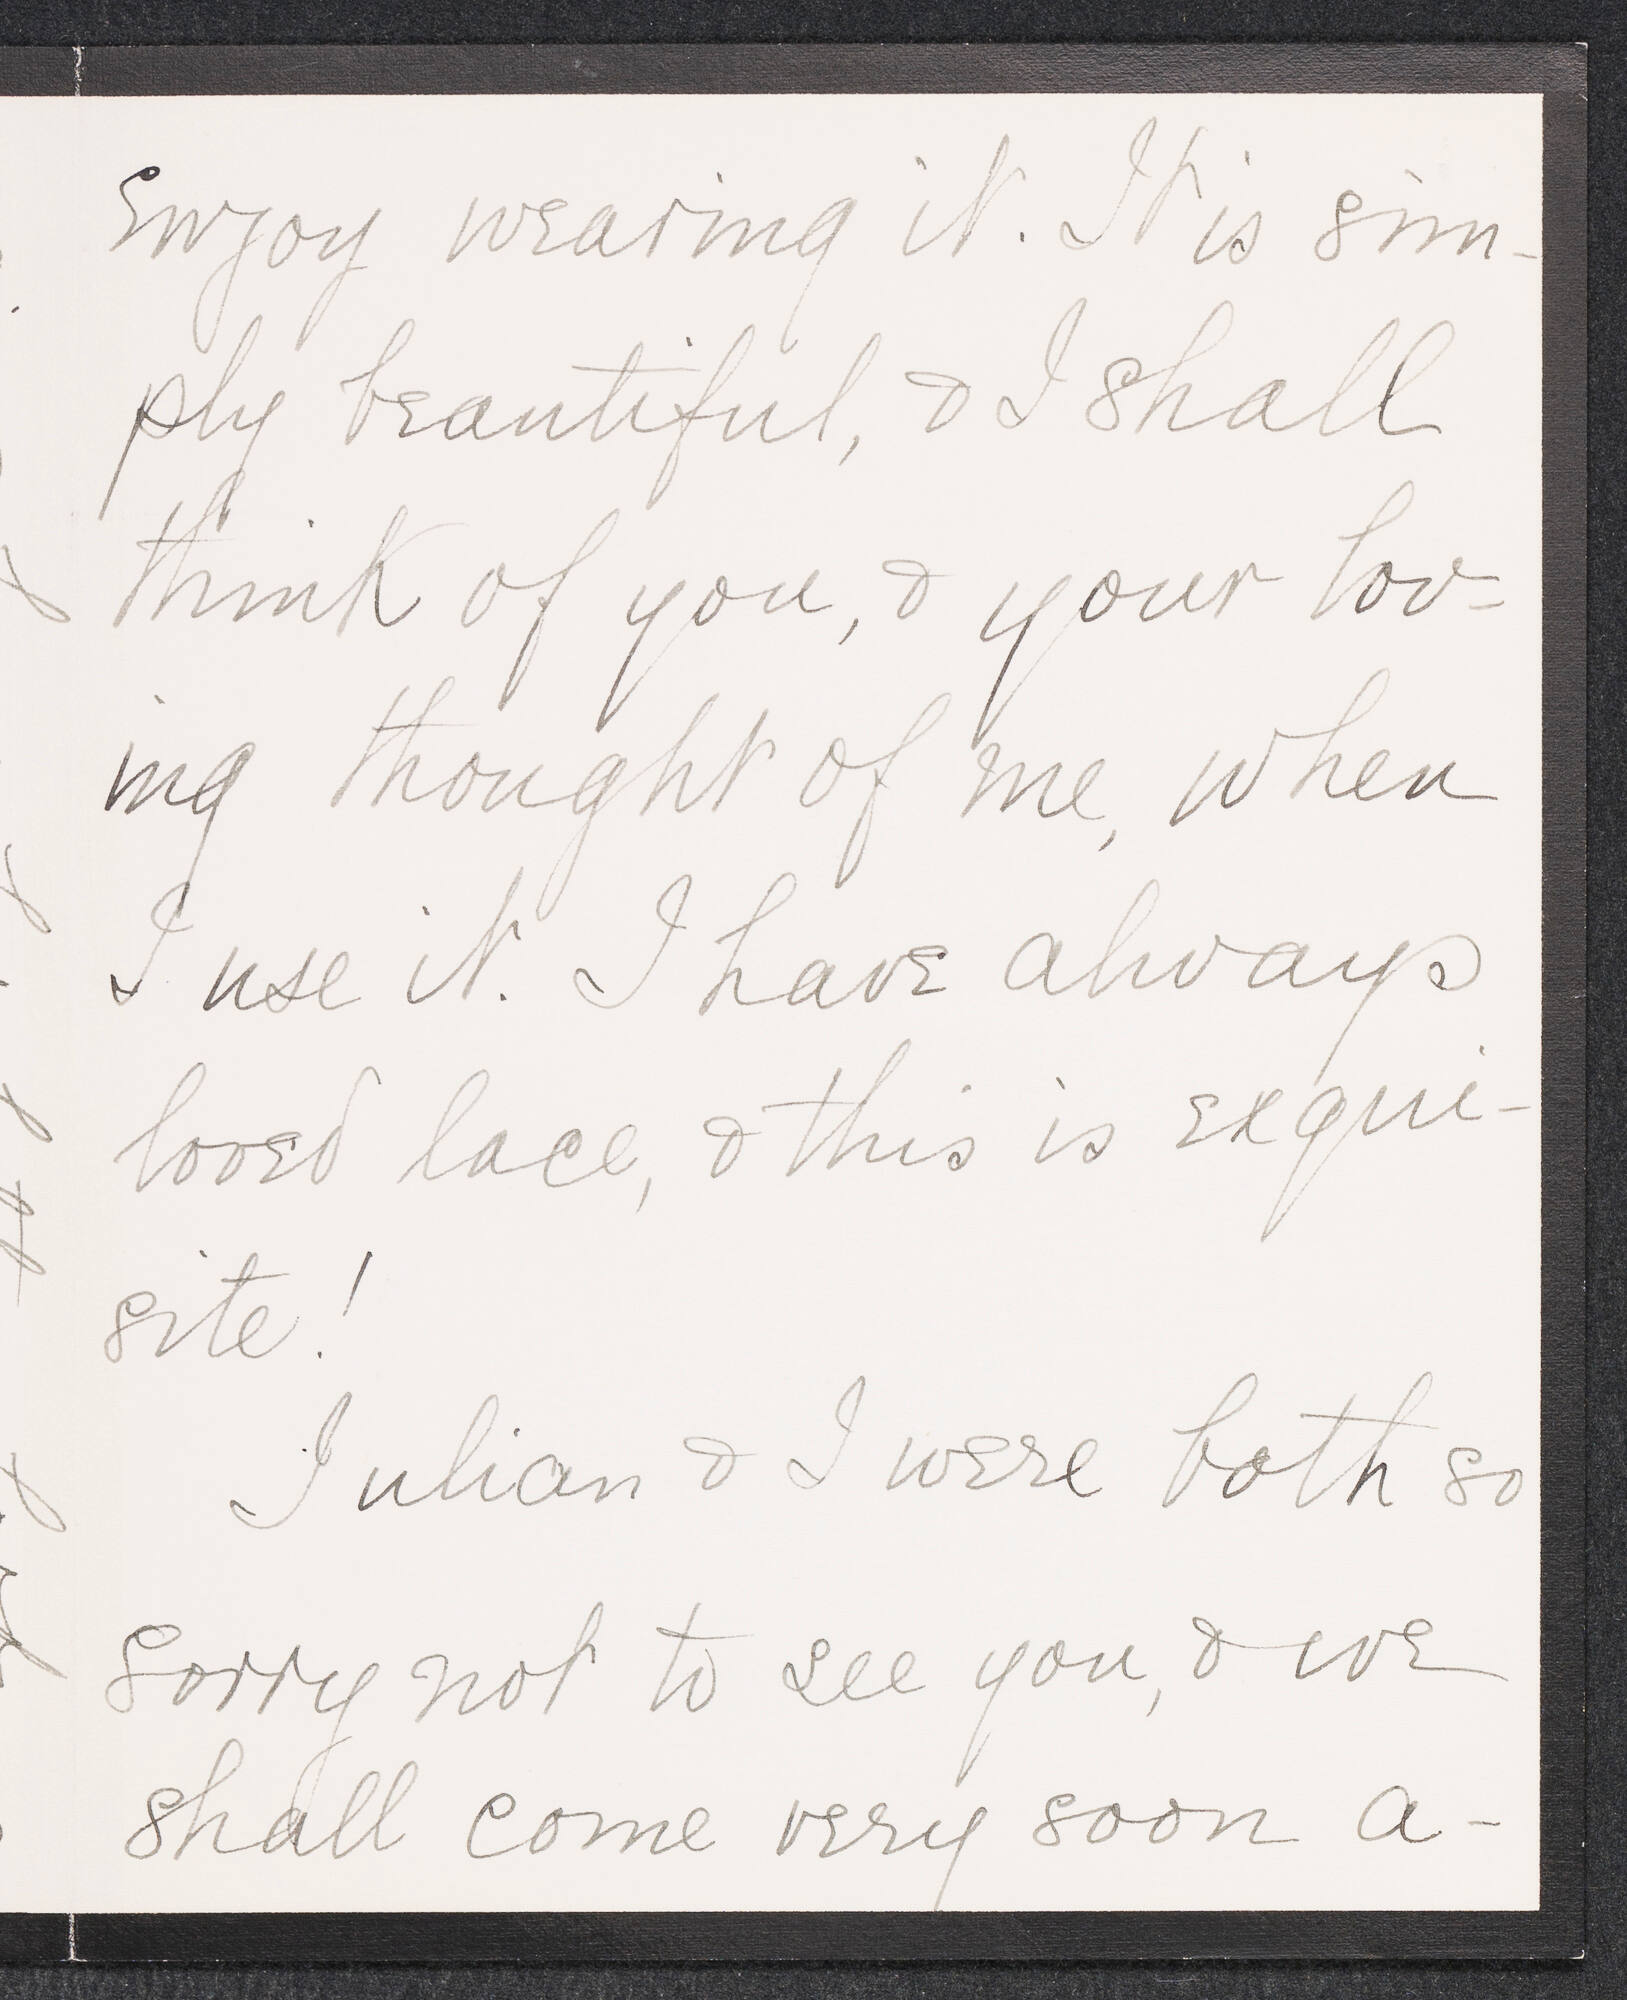 Enjoy wearing it. It is sim-
ply beautiful, & I shall
think of you, & your lov=
ing thought of me, when
I use it. I have always
loved lace, & this is exqui-
site!
Julian & I were both so
sorry not to see you, & we
shall come very soon a-